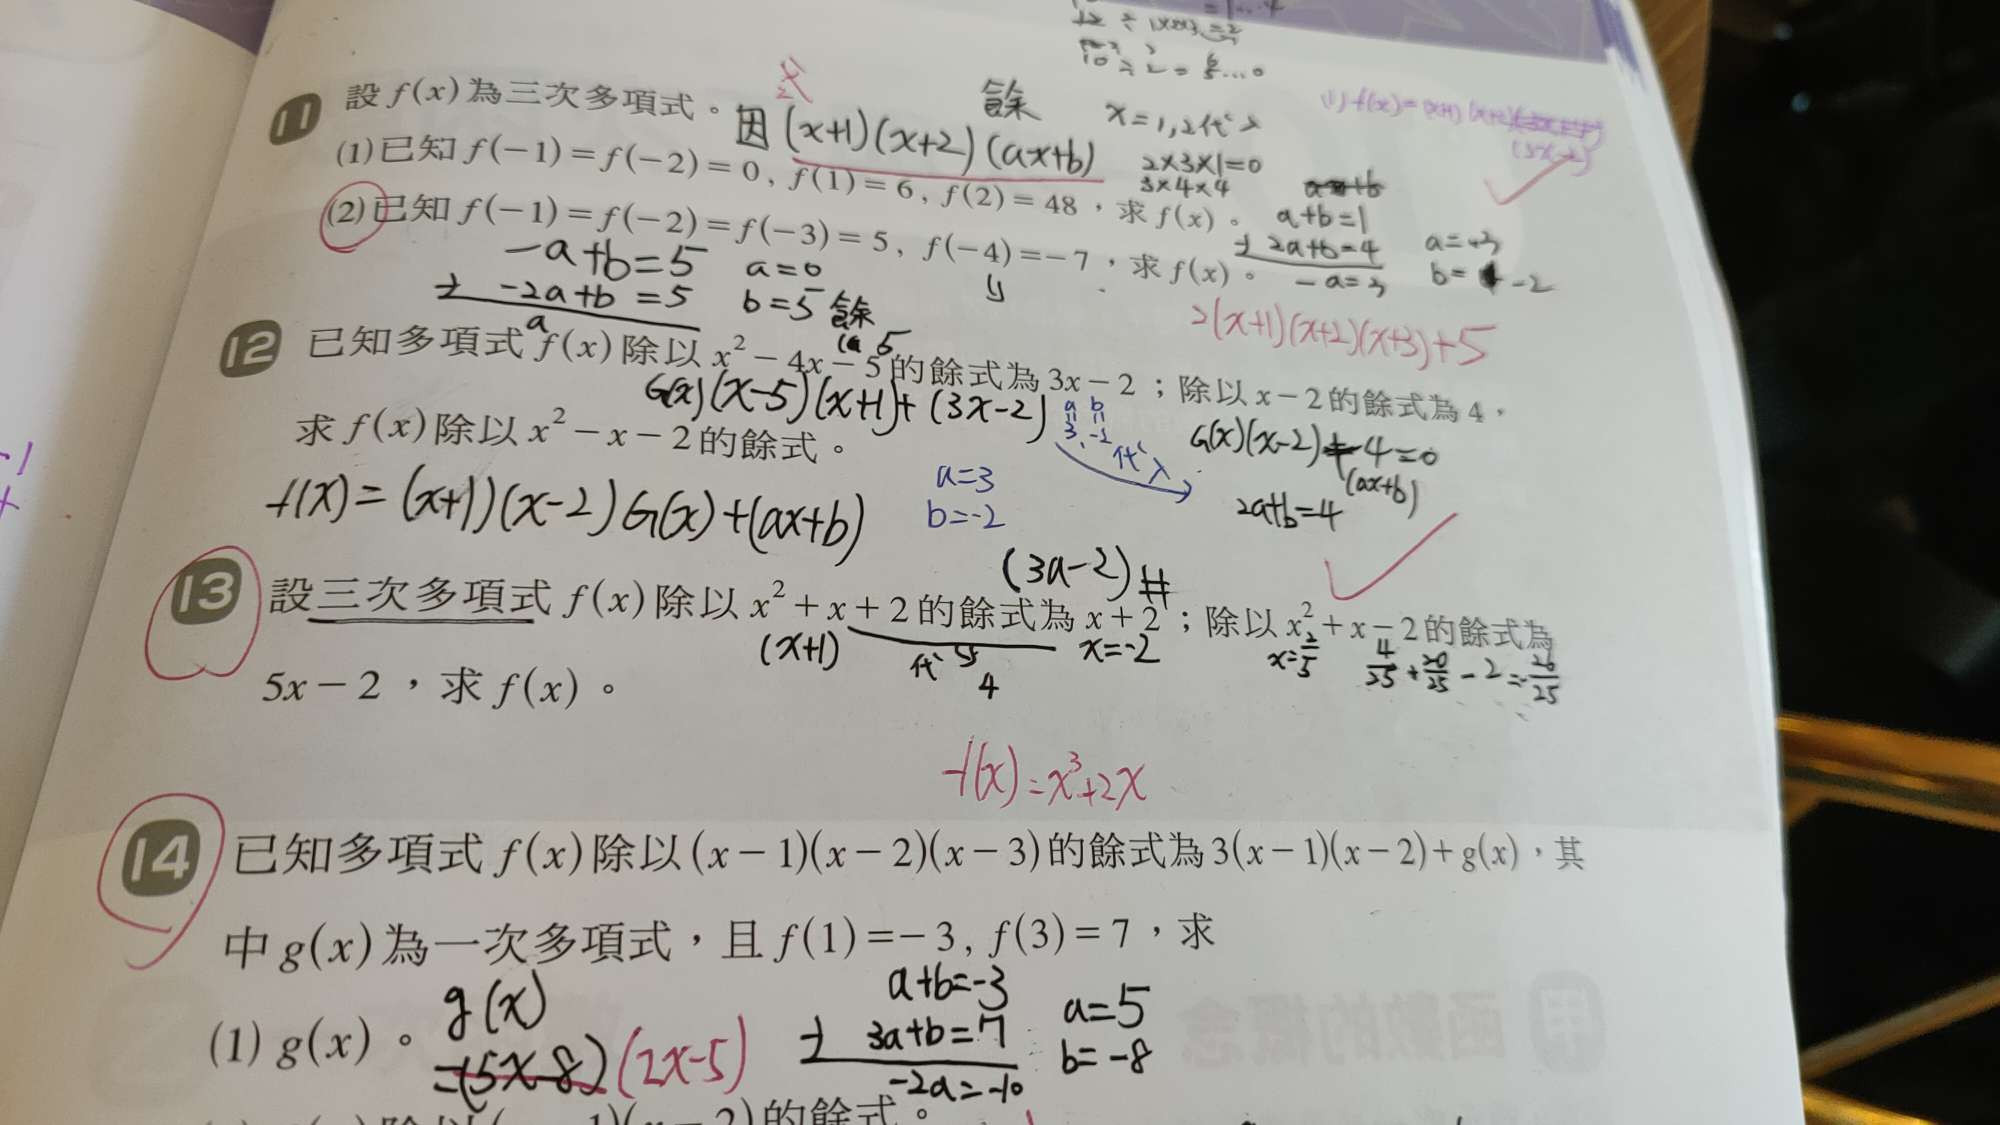 10 ÷ 2 = 5...0
11 設 f(x) 為三次多項式。
式
因 (x+1)(x+2)(ax+b)
餘
x=1,2代入
(1) 已知 f(−1) = f(−2) = 0, f(1) = 6, f(2) = 48，求 f(x)。
2×3×1=0
3×4×4
a+b=1
2a+b=4
-a=3
a=+3
b= -2
(2) 已知 f(−1) = f(−2) = f(−3) = 5, f(−4) = −7，求 f(x)。
-a+b=5
-2a+b=5
a
a=0
b=5
餘
5
2(x+1)(x+2)(x+3)+5
12 已知多項式 f(x) 除以 x² − 4x − 5 的餘式為 3x − 2；除以 x − 2 的餘式為 4，
G(x)(x-5)(x+1)+(3x-2)
a b
3, -2
代入
求 f(x) 除以 x² − x − 2 的餘式。
G(x)(x-2) -4=0
(ax+b)
a=3
b=-2
2a+b=4
f(x)=(x+1)(x-2)G(x)+(ax+b)
(3a-2)#
13 設三次多項式 f(x) 除以 x² + x + 2 的餘式為 x + 2；除以 x² + x − 2 的餘式為
(x+1)
代
4
x=-2
x=2/5
4/25 + 20/25 - 2 = -26/25
5x − 2，求 f(x)。
f(x)=x³+2x
14 已知多項式 f(x) 除以 (x − 1)(x − 2)(x − 3) 的餘式為 3(x − 1)(x − 2) + g(x)，其
中 g(x) 為一次多項式，且 f(1) = − 3, f(3) = 7，求
(1) g(x)。
g(x)
=(5x-8)
(2x-5)
a+b=-3
3a+b=7
-2a=-10
a=5
b=-8